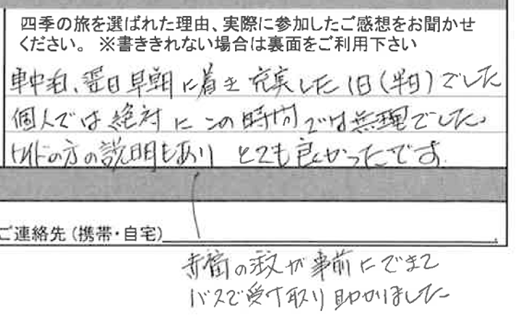 四季の旅を選ばれた理由、実際に参加したご感想をお聞かせ
ください。 ※書ききれない場合は裏面をご利用下さい
車中泊、翌日早朝に着き充実した1日(半日)でした
個人では絶対にこの時間では無理でした。
ガイドの方の説明もあり とても良かったです
ご連絡先(携帯・自宅)
の
が事前にできて
バスで受け取り助かりました